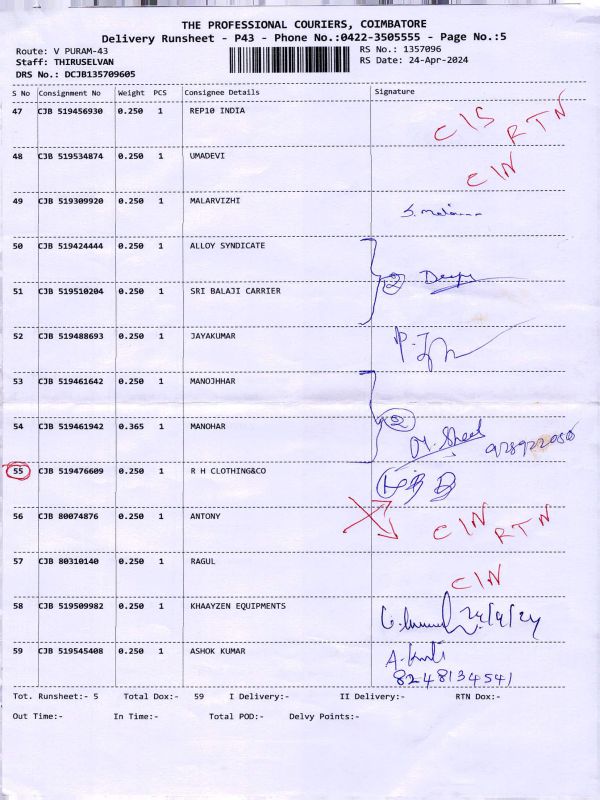 THE PROFESSIONAL COURIERS, COIMBATORE
Delivery Runsheet - P43 - Phone No.:0422-3505555 - Page No.:5
Route: V PURAM-43 RS No.: 1357096
Staff: THIRUSELVAN RS Date: 24-Apr-2024
DRS No.: DCJB135709605
S No Consignment No Weight PCS Consignee Details Signature
47 CJB 519456930 0.250 1 REP10 INDIA C/S RTN
48 CJB 519534874 0.250 1 UMADEVI C/N
49 CJB 519309920 0.250 1 MALARVIZHI
50 CJB 519424444 0.250 1 ALLOY SYNDICATE
51 CJB 519510204 0.250 1 SRI BALAJI CARRIER 2
52 CJB 519488693 0.250 1 JAYAKUMAR
53 CJB 519461642 0.250 1 MANOJHHAR
54 CJB 519461942 0.365 1 MANOHAR 2
55 CJB 519476609 0.250 1 R H CLOTHING&CO
56 CJB 80074876 0.250 1 ANTONY C/N RTN
57 CJB 80310140 0.250 1 RAGUL C/N
58 CJB 519509982 0.250 1 KHAAYZEN EQUIPMENTS 24/4/24
59 CJB 519545408 0.250 1 ASHOK KUMAR
8248134541
Tot. Runsheet:- 5 Total Dox:- 59 I Delivery:- II Delivery:- RTN Dox:-
Out Time:- In Time:- Total POD:- Delvy Points:-